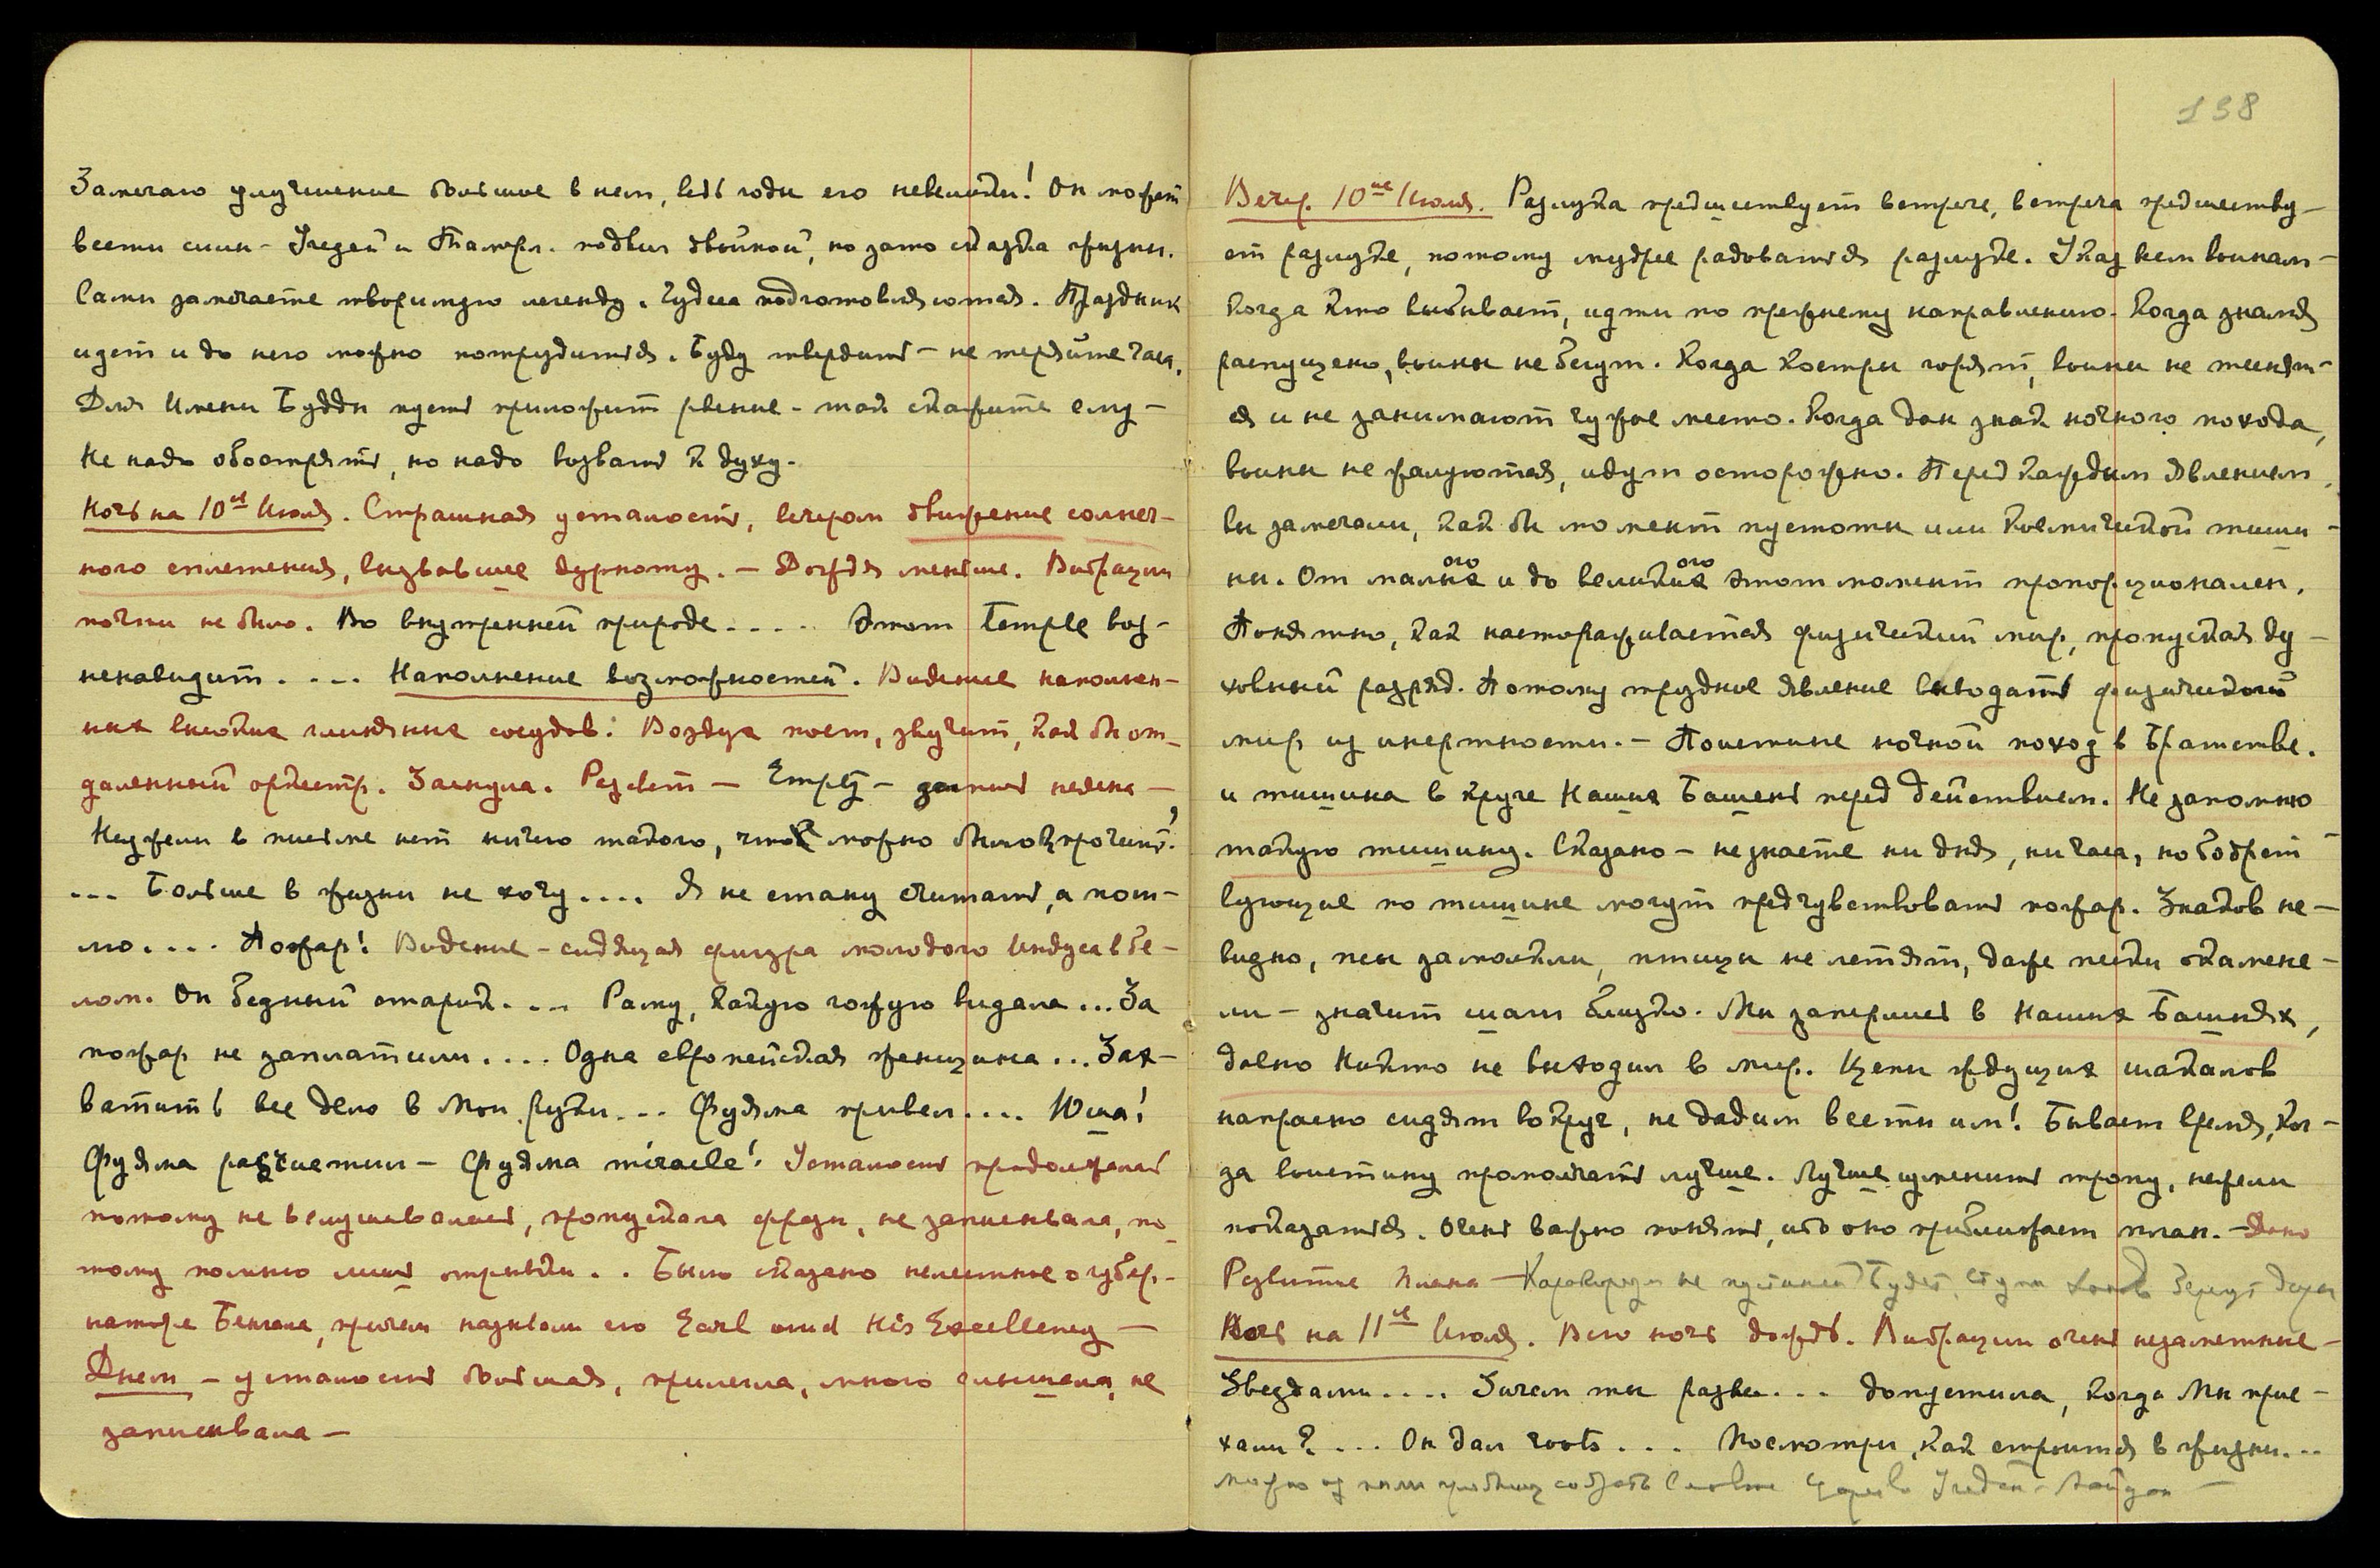 Замечаю улучшение большое в нем, ведь годы его невелики! Он может
вести силы – Удрая и Тампл. подвиг двойной, но зато сказка жизни.
Сами замечаете творимую легенду. Чудеса подготовляются. Праздник
идет и до него можно потрудиться. Буду твердить – не теряйте часа,
Для Имени Будды пусть приложит рвение – так скажите ему –
Не надо обострять, но надо воззвать к духу.
Ночь на 10ое Июля. Страшная усталость, вечером движение солнеч-
ного сплетения, вызвавшее дурноту. – Дождя меньше. Вибрации
почти не было. Во внутренней природе.... Этот Temple воз-
ненавидит.... Наполнение возможностей. Видение наполнен-
ных высоких глиняных сосудов: Воздух поет, звучит, как бы от-
даленный оркестр. Заснула. Рассвет – Empty – запись неясна –
Неужели в письме нет ничего такого, что можно было прочесть?
... Больше в жизни не хочу.... Я не стану считать, а пот-
ом.... Пожар! Видение – сидящая фигура молодого Индуса в бе-
лом. Он бедный старик.... Раму, какую чужую видала... За
пожар не заплатили.... Одна европейская женщина... Зах-
ватить все дело в Мои руки... Фуяма привел.... Юша!
Фуяма расчистил – Фуяма miracle! Усталость продолжалась
потому не вслушивалась, пропускала фразы, не записывала, по-
тому помню лишь отрывки.. Было сказано нелестное о губер-
наторе Бенгала, причем называли его Earl and His Excellency –
Днем – усталость большая, прилегла, много слышала, не
записывала –
138
Вечер. 10ое Июля. Разлука предшествует встрече, встреча предшеству-
ет разлуке, потому мудрее радоваться разлуке. Указ всем воинам –
Когда кто выбывает, идти по прежнему направлению. Когда знамя
распущено, воины не бегут. Когда костры горят, воины не теснят-
ся и не занимают чужое место. Когда дан знак ночного похода,
воины не жалуются, идут осторожно. Перед каждым явлением
вы замечали, как бы момент пустоты или космической тиши-
ны. От малого и до великого этот момент пропорционален.
Понятно, как настораживается физический мир, пропуская ду-
ховный разряд. Потому трудное явление выводить физический
мир из инертности. – Поистине ночной поход в Братстве.
и тишина в круге Наших Башень перед действием. Не запомню
такую тишину. Сказано – не знаете ни дня, ни часа, но бодрст-
вующие по тишине могут предчувствовать пожар. Знаков не-
видно, псы замолкли, птицы не летят, даже пески окамене-
ли – значит шаги близко. Мы заперлись в Наших Башнях,
давно Никто не выходил в мир. Цепи ждущих шакалов
напрасно сидят вокруг, не дадим вести им! Бывает время, ког-
да воистину промолчать лучше. Лучше изменить тропу, нежели
показаться. Очень важно понять, ибо оно приближает план. – Дано
Развитие плана – не пустыней будет берегут
Ночь на 11ое Июля. Всю ночь дождь. Вибрации очень незаметные –
Звездами.... Зачем ты разве... допустила, когда Мы прие-
хали?... Он дал roots... Посмотри, как строится в жизни...
можно из собрать